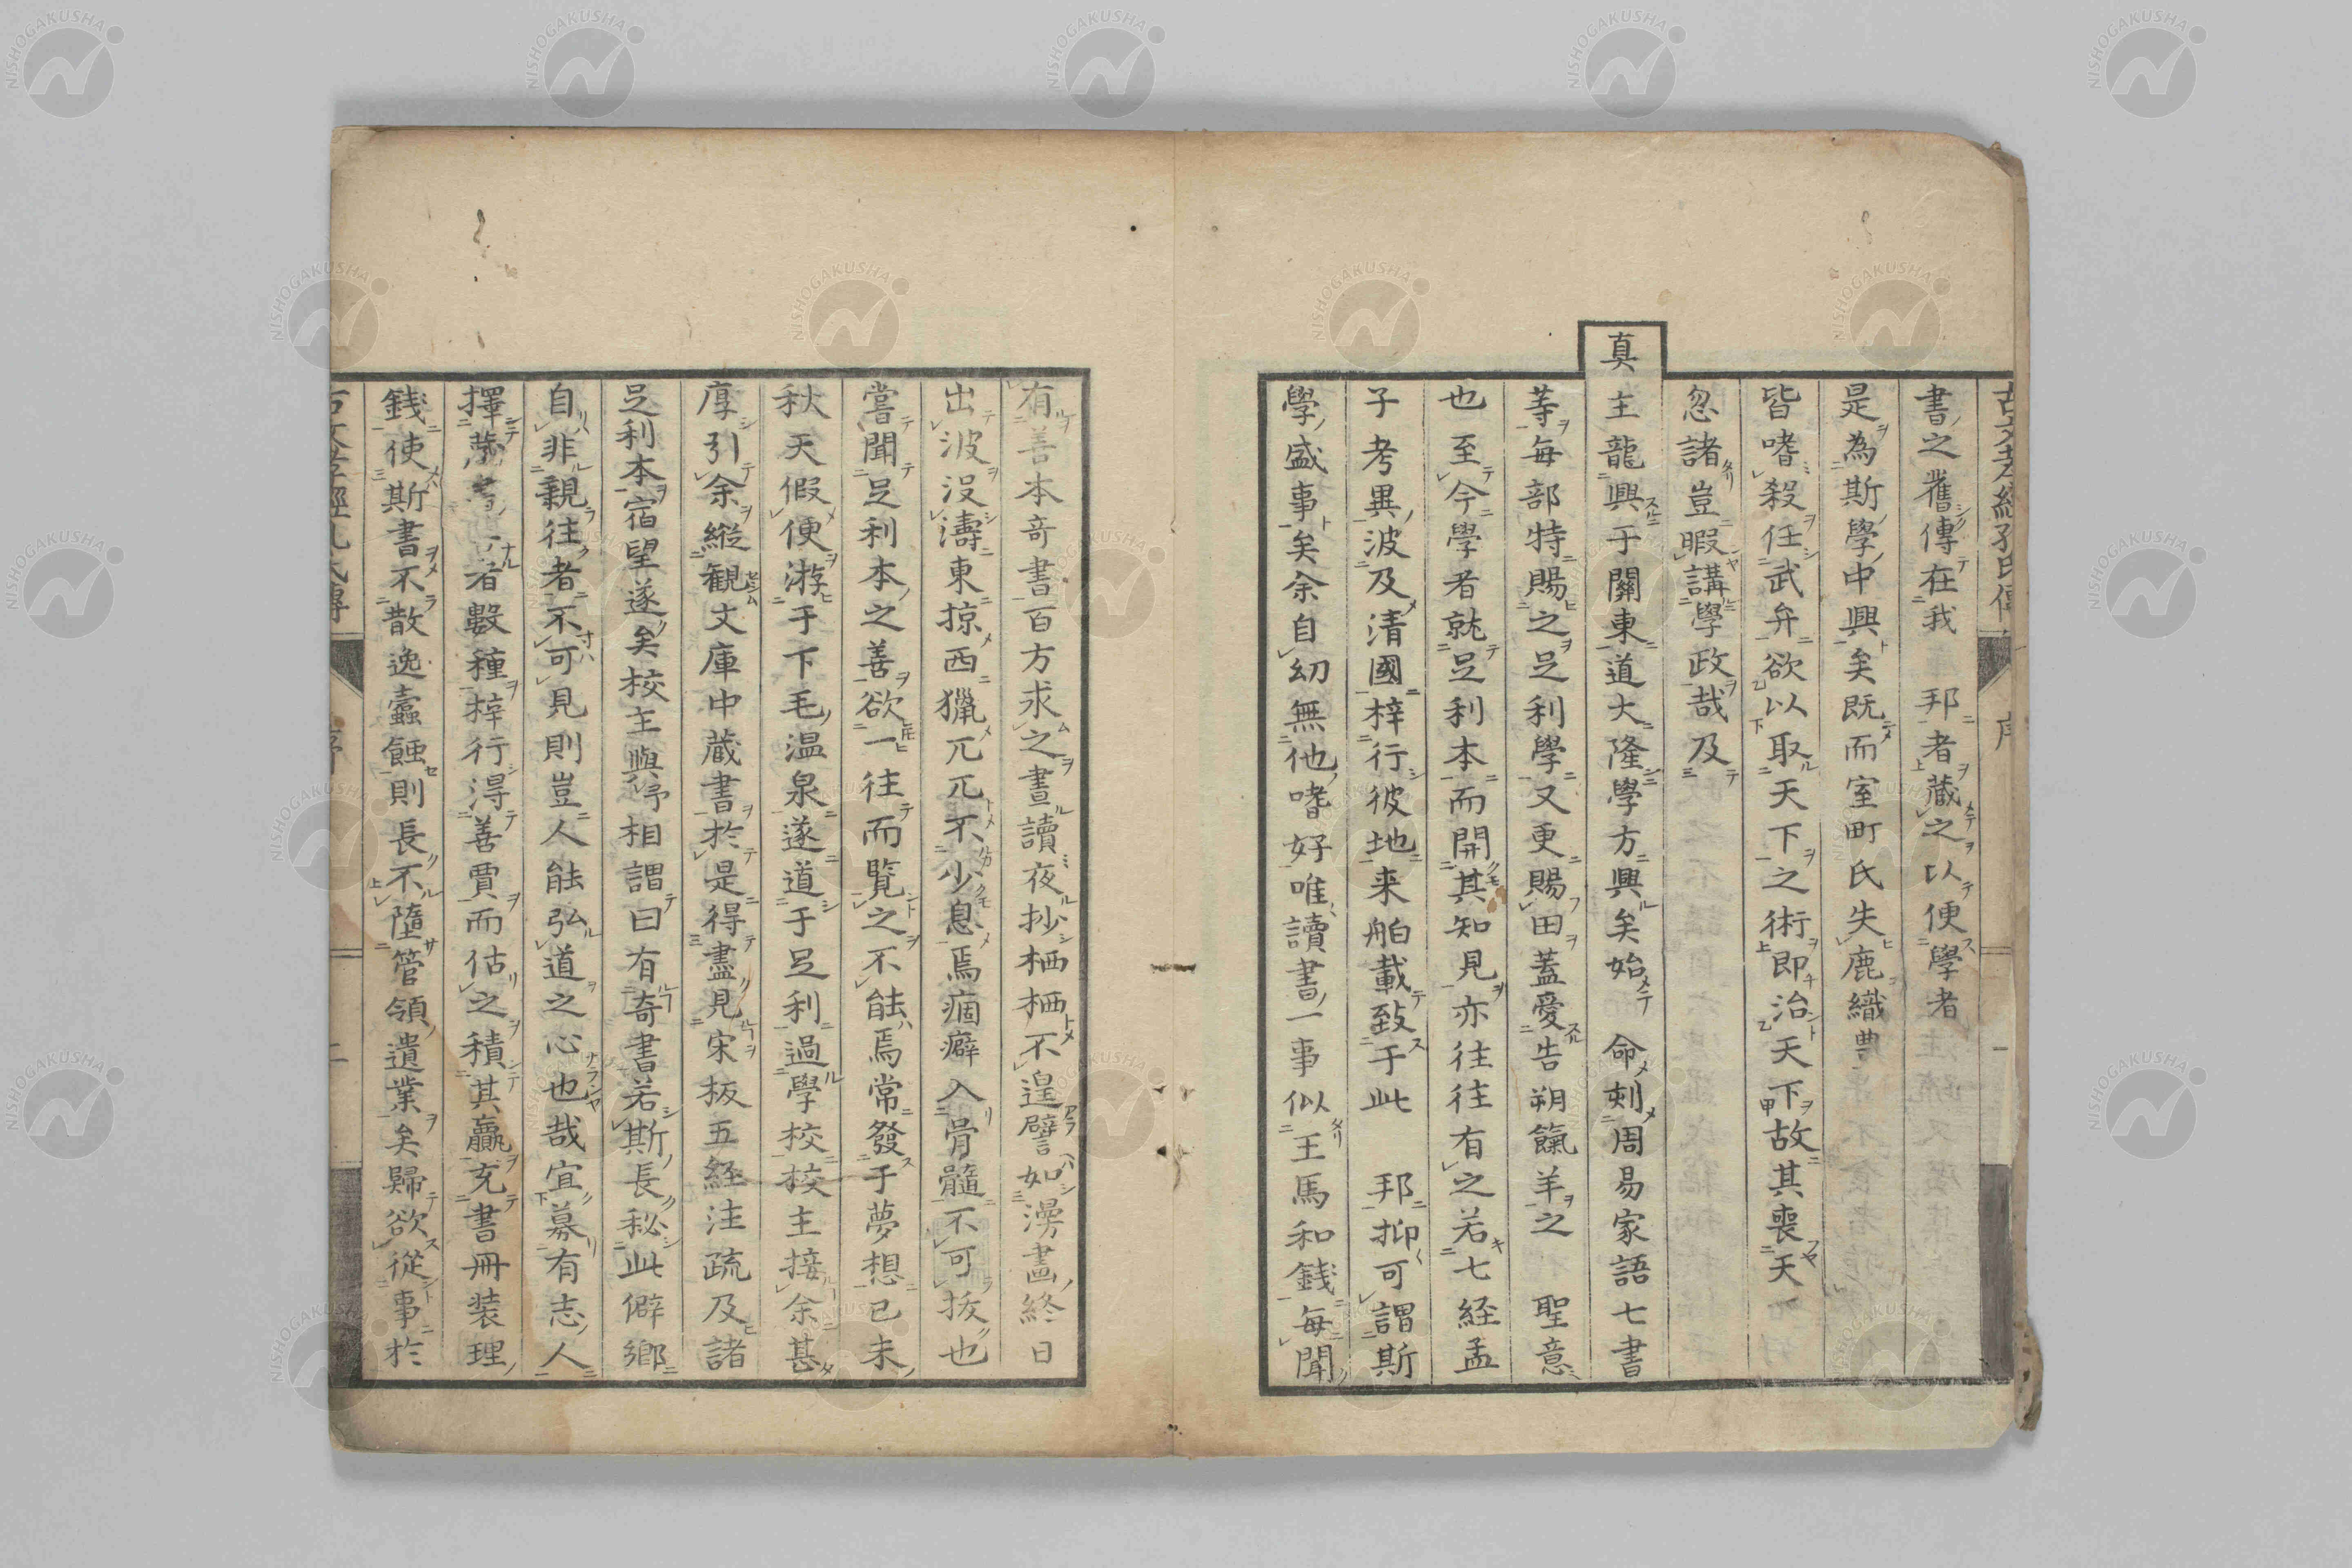 書之舊傳在我 邦者藏之以便學者
是為斯學中興矣既而室町氏失鹿織豊
皆嗜殺任武弁欲以取天下之術即治天下故其喪天
忽諸豈暇講學政哉及
真主龍興于關東道大隆學方興矣始 命刻周易家語七書
等每部特賜之足利學又更賜田蓋愛告朔餼羊之 聖意
也至今學者就足利本而開其知見亦往往有之若七経孟
子考異波及清國梓行彼地来舶載致于此 邦抑可謂斯
學盛事矣余自幼無他嗜好唯讀書一事似王馬和錢每聞
有善本奇書百方求之晝讀夜抄栖栖不遑譬如漫畫終日
出波沒濤東掠西獵兀兀不少息焉痼癖入骨髓不可拔也
嘗聞足利本之善欲一往而覧之不能焉常發于夢想已未
秋天假便游于下毛温泉遂道于足利過學校校主接余甚
厚引余縱観文庫中蔵書於是得盡見宋板五経注疏及諸
足利本宿望遂矣校主與予相謂曰有奇書若斯長秘此僻鄉
自非親往者不可見則豈人能弘道之心也哉宜募有志人
擇 者數種梓行得善賈而估之積其贏充書冊装理
錢使斯書不散逸蠹蝕則長不墮管領遺業矣歸欲從事於
古文孝經孔氏傳 序 一
古文孝經孔氏傳 序 二
NISHOGAKUSHA